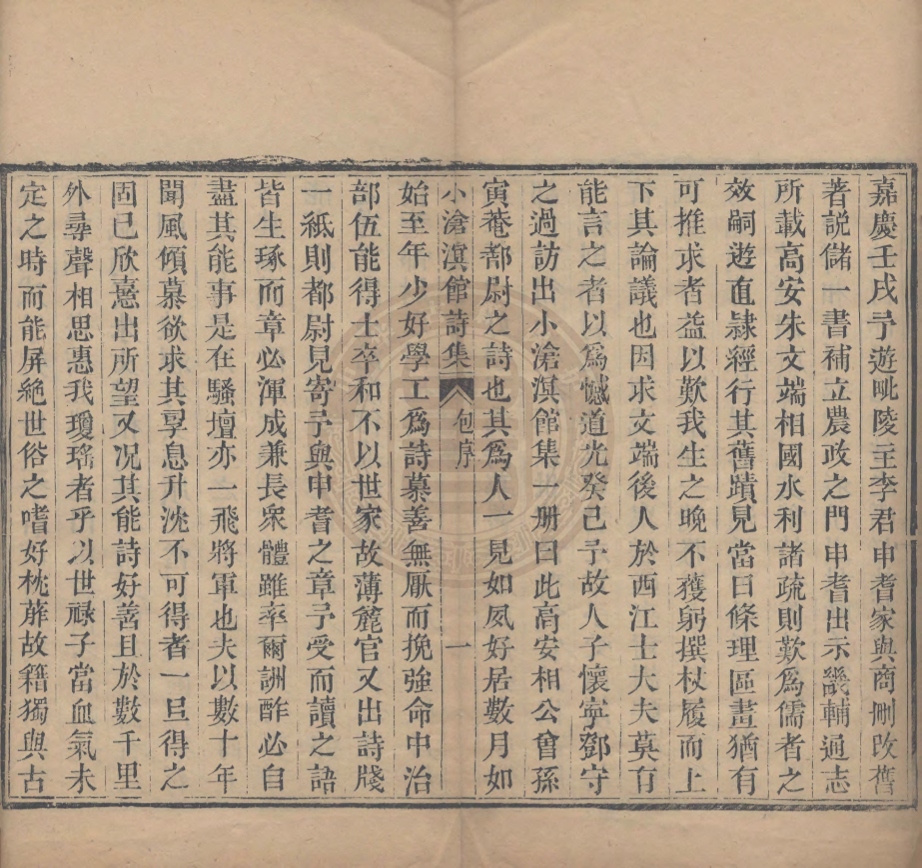 嘉慶壬戌予遊毗陵主李君申耆家與商刪改舊
著說儲一書補立農政之門申耆出示畿輔通志
所載高安朱文端相國水利諸疏則歎爲儒者之
效嗣遊直隷經行其舊蹟見當日條理區畫猶有
可推求者益以歎我生之晚不獲躬撰杖履而上
下其論議也因求文端後人於西江士大夫莫有
能言之者以爲憾道光癸巳予故人子懷寧鄧守
之過訪出小滄溟館集一册曰此高安相公曾孫
寅菴都尉之詩也其爲人一見如夙好居數月如
小滄溟館詩集 包序 一
始至年少好學工爲詩慕善無厭而挽強命中治
部伍能得士卒和不以世家故薄麄官又出詩牋
一紙則都尉見寄予與申耆之章予受而讀之語
皆生琢而章必渾成兼長衆體雖率爾詶酢必自
盡其能事是在騷壇亦一飛將軍也夫以數十年
聞風傾慕欲求其孠息升沈不可得者一旦得之
固已欣憙出所望又况其能詩好善且於數千里
外尋聲相思惠我瓊瑤者乎以世祿子當血氣未
定之時而能屏絕世俗之嗜好枕葄故籍獨與古